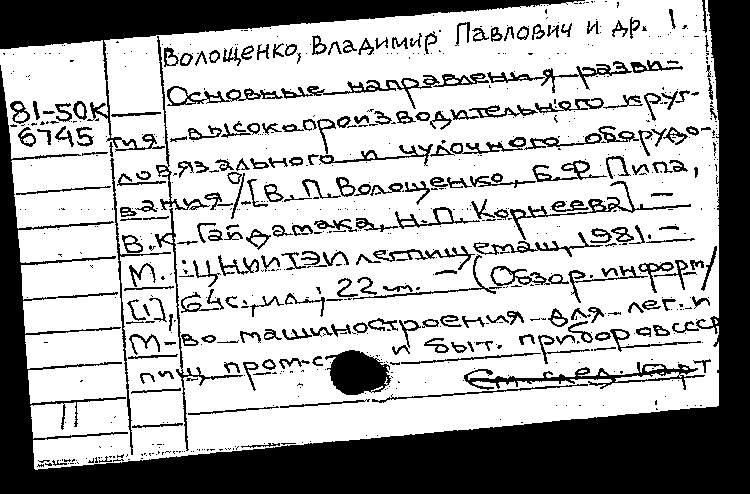 Волощенко, Владимир Павлович и др. 1.
Основные направления разви-
81-50К
6745
тия высокопроизводительного круг-
ловязального и чулочного оборудо-
вания / [В. П. Волощенко, Б. Ф. Пипа,
В. К. Гайдамака, Н. П. Корнеева]. —
М. : ЦНИИТЭИлегпищемаш, 1981. —
[1], 64 с., ил.; 22 см. — (Обзор. информ /
М-во машиностроения для лег. и
пищ пром-с и быт. приборов СССР
См. след. карт.
11